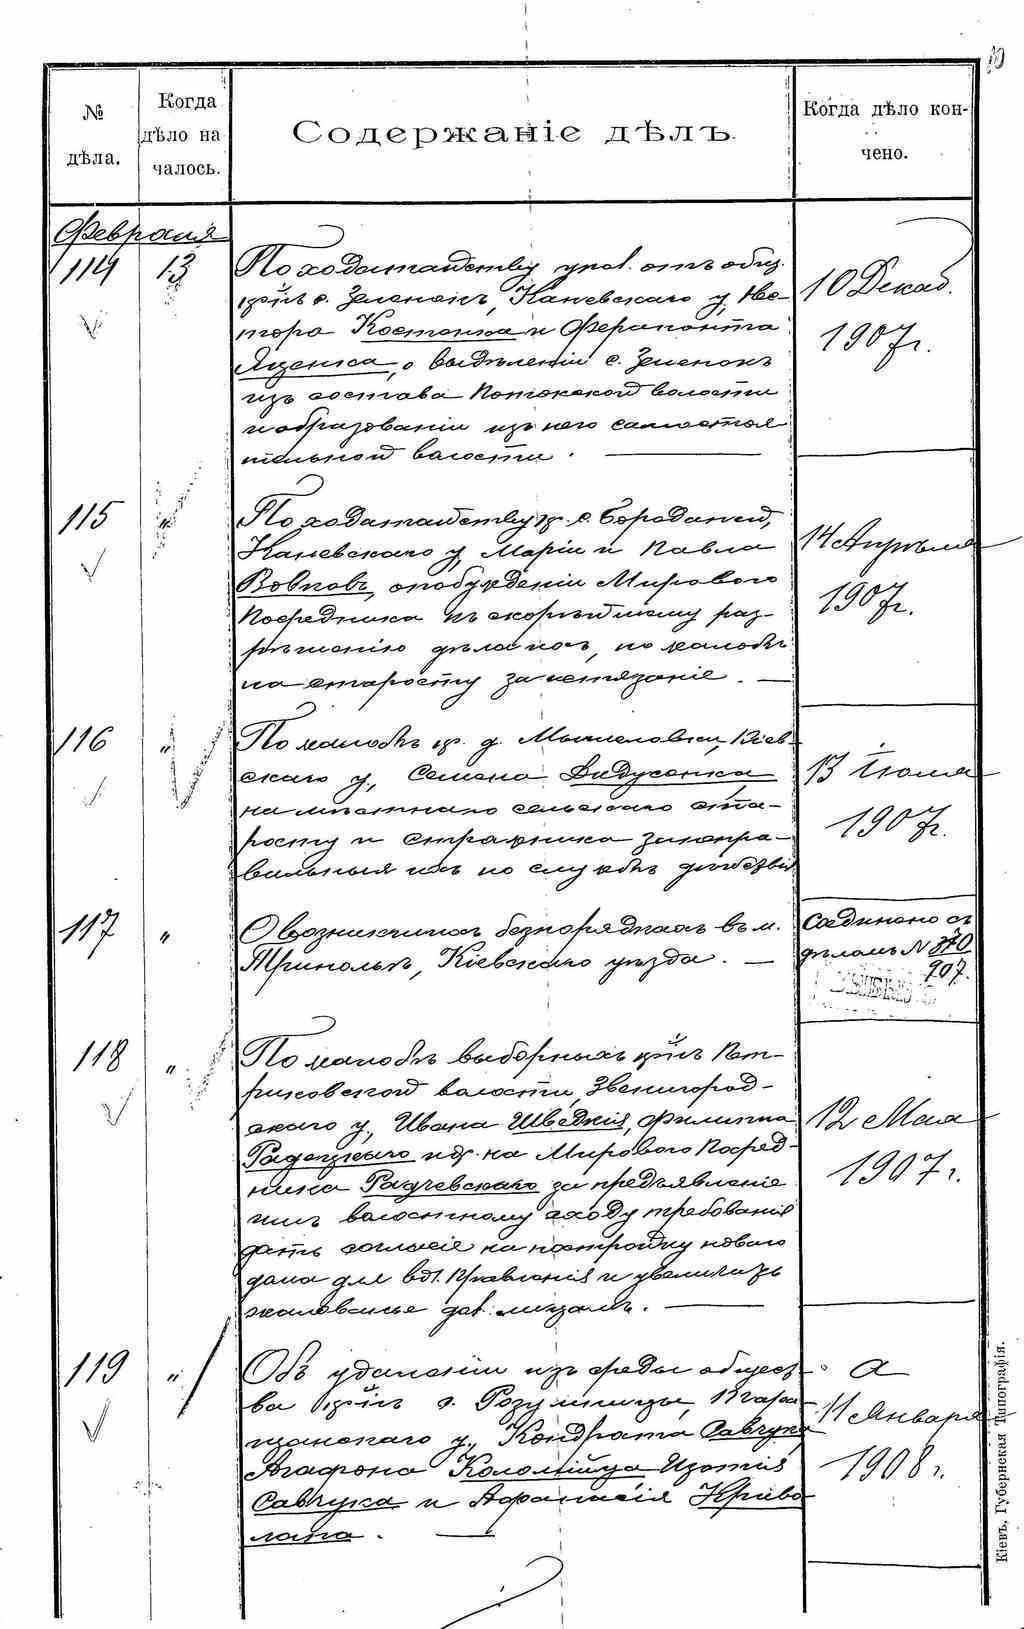 № дѣла.
Когда дѣло на чалось.
Содержаніе дѣлъ.
Когда дѣло кончено.
Февраля
114
13
По ходатайству упол. отъ общ.
кр-нъ с. Зеленокъ, Каневскаго у, Не-
стора Костенка и Ферапонта
Яценка, о выдѣленіи с. Зеленокъ
изъ состава Потокской волости
и образованіи изъ него самостоя
тельной волости.
10 Декаб.
1907 г.
115
"
По ходатайству кр. с. Бородані,
Каневскаго у, Маріи и Павла
Вовковъ, о побужденіи Мирового
Посредника къ скорѣйшему раз-
рѣшенію дѣла ихъ, по жалобѣ
на старосту за истязаніе.
14 Апрѣля
1907 г.
116
"
По жалобѣ кр. д. Мышеловки, Кіев-
скаго у, Семена Дидусенка
на мѣстнаго сельскаго ста-
росту и стражника за непра-
вильныя ихъ по службѣ дѣйствія
13 Іюля
1907 г.
117
"
О возникшихъ безпорядкахъ въ м.
Трипольѣ, Кіевскаго уѣзда.
Соединено съ
дѣломъ N 370
907.
118
"
По жалобѣ выборныхъ кр-нъ Пет-
риковской волости, Звенигород-
скаго у, Ивана Шведкія, Филиппа
Радецкаго и др. на Мирового Посред-
ника Радчевскаго за предъявленіе
имъ волостному сходу требованія
дать согласіе на постройку новаго
дома для вол. Правленія и увеличить
жалованье дол. лицамъ.
12 Мая
1907 г.
119
"
Объ удаленіи изъ среды общест-
ва кр-нъ с. Розумницы, Тара-
щанскаго у, Кондрата Савчука
Агафона Коломійца Изотія
Савчука и Афанасія Криво
лапа.
а
11 Января
1908 г.
Кіевъ, Губернская Типографія.